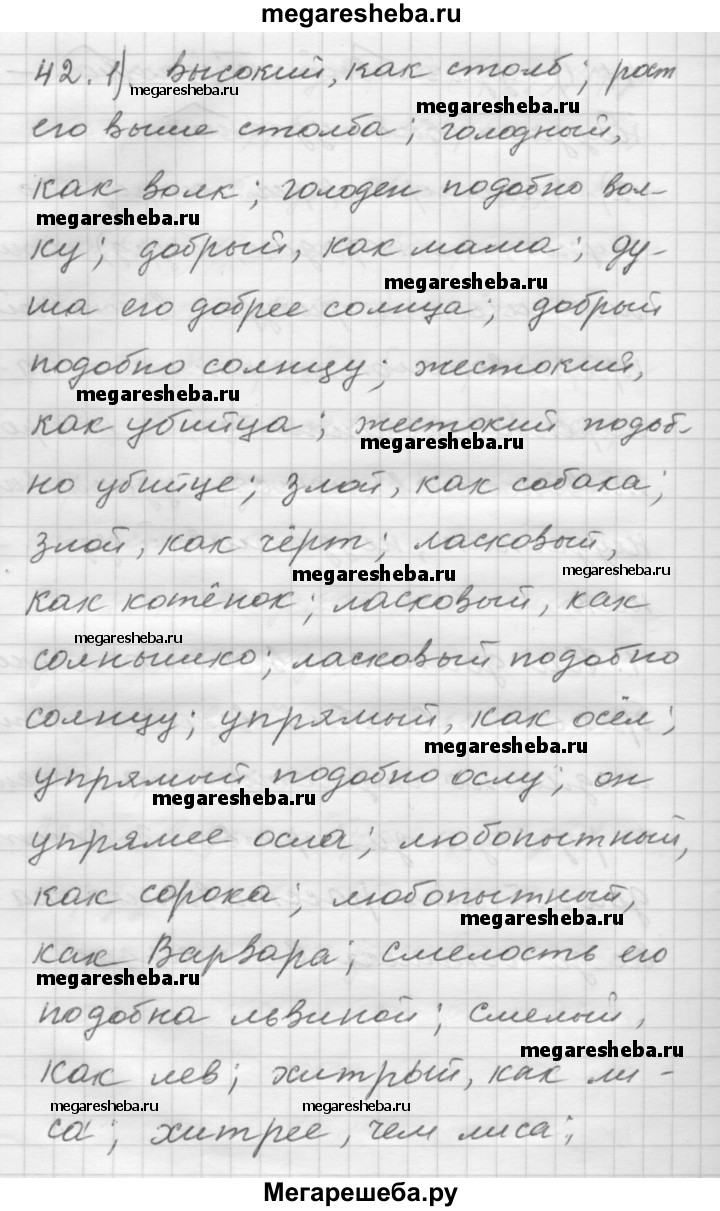 megaresheba.ru
42. 1) высокий, как столб; рост
megaresheba.ru
megaresheba.ru
его выше столба; голодный,
как волк; голоден подобно вол-
megaresheba.ru
ку; добрый, как мама; ду-
megaresheba.ru
ша его добрее солнца; добрый
подобно солнцу; жестокий,
megaresheba.ru
как убийца; жестокий подоб-
megaresheba.ru
но убийце; злой, как собака;
злой, как чёрт; ласковый,
megaresheba.ru
megaresheba.ru
как котёнок; ласковый, как
megaresheba.ru
солнышко; ласковый подобно
солнцу; упрямый, как осёл;
megaresheba.ru
упрямый подобно ослу; он
megaresheba.ru
упрямее осла; любопытный,
как сорока; любопытный,
megaresheba.ru
как Варвара; смелость его
megaresheba.ru
подобна львиной; смелый,
megaresheba.ru
как лев; хитрый, как ли-
megaresheba.ru
megaresheba.ru
са; хитрее, чем лиса;
Мегарешеба.ру